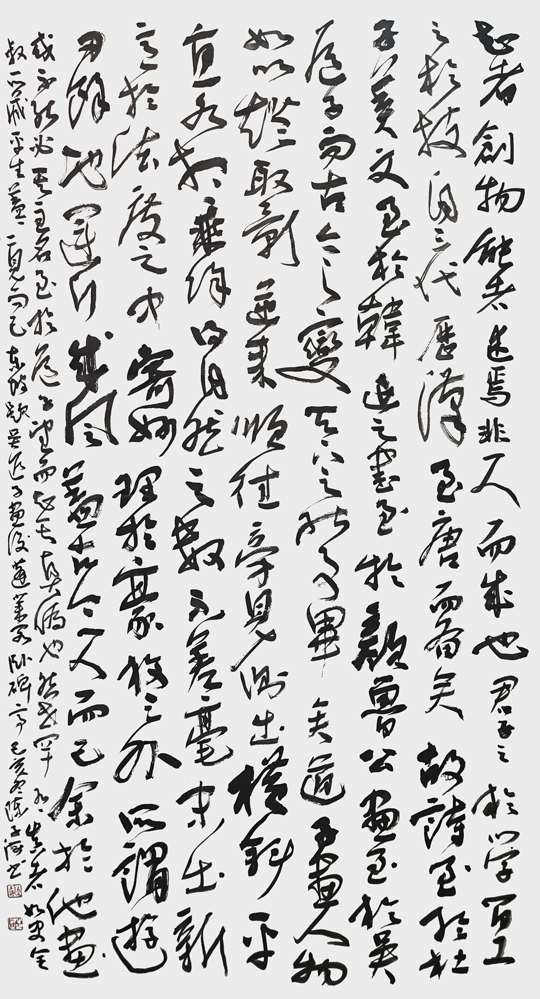 知者創物能者述焉非一人而成也君子之於學百工
之於技自三代歷漢至唐而備矣故詩至於杜
子美文至於韓退之書至於顏魯公畫至於吳
道子而古今之變天下之能事畢矣道子畫人物
如以燈取影逆來順往旁見側出橫斜平
直各於乘除得自然之數不差毫末出新
意於法度之中寄妙理於豪放之外所謂游
刃餘地運斤成風蓋古今一人而已余於他畫
或不能必其主名至於道子望而知其真偽也然世罕有真者如史全
叔所藏平生蓋一二見而已東坡跋吳道子畫後 臥碑亭己亥冬陳 書